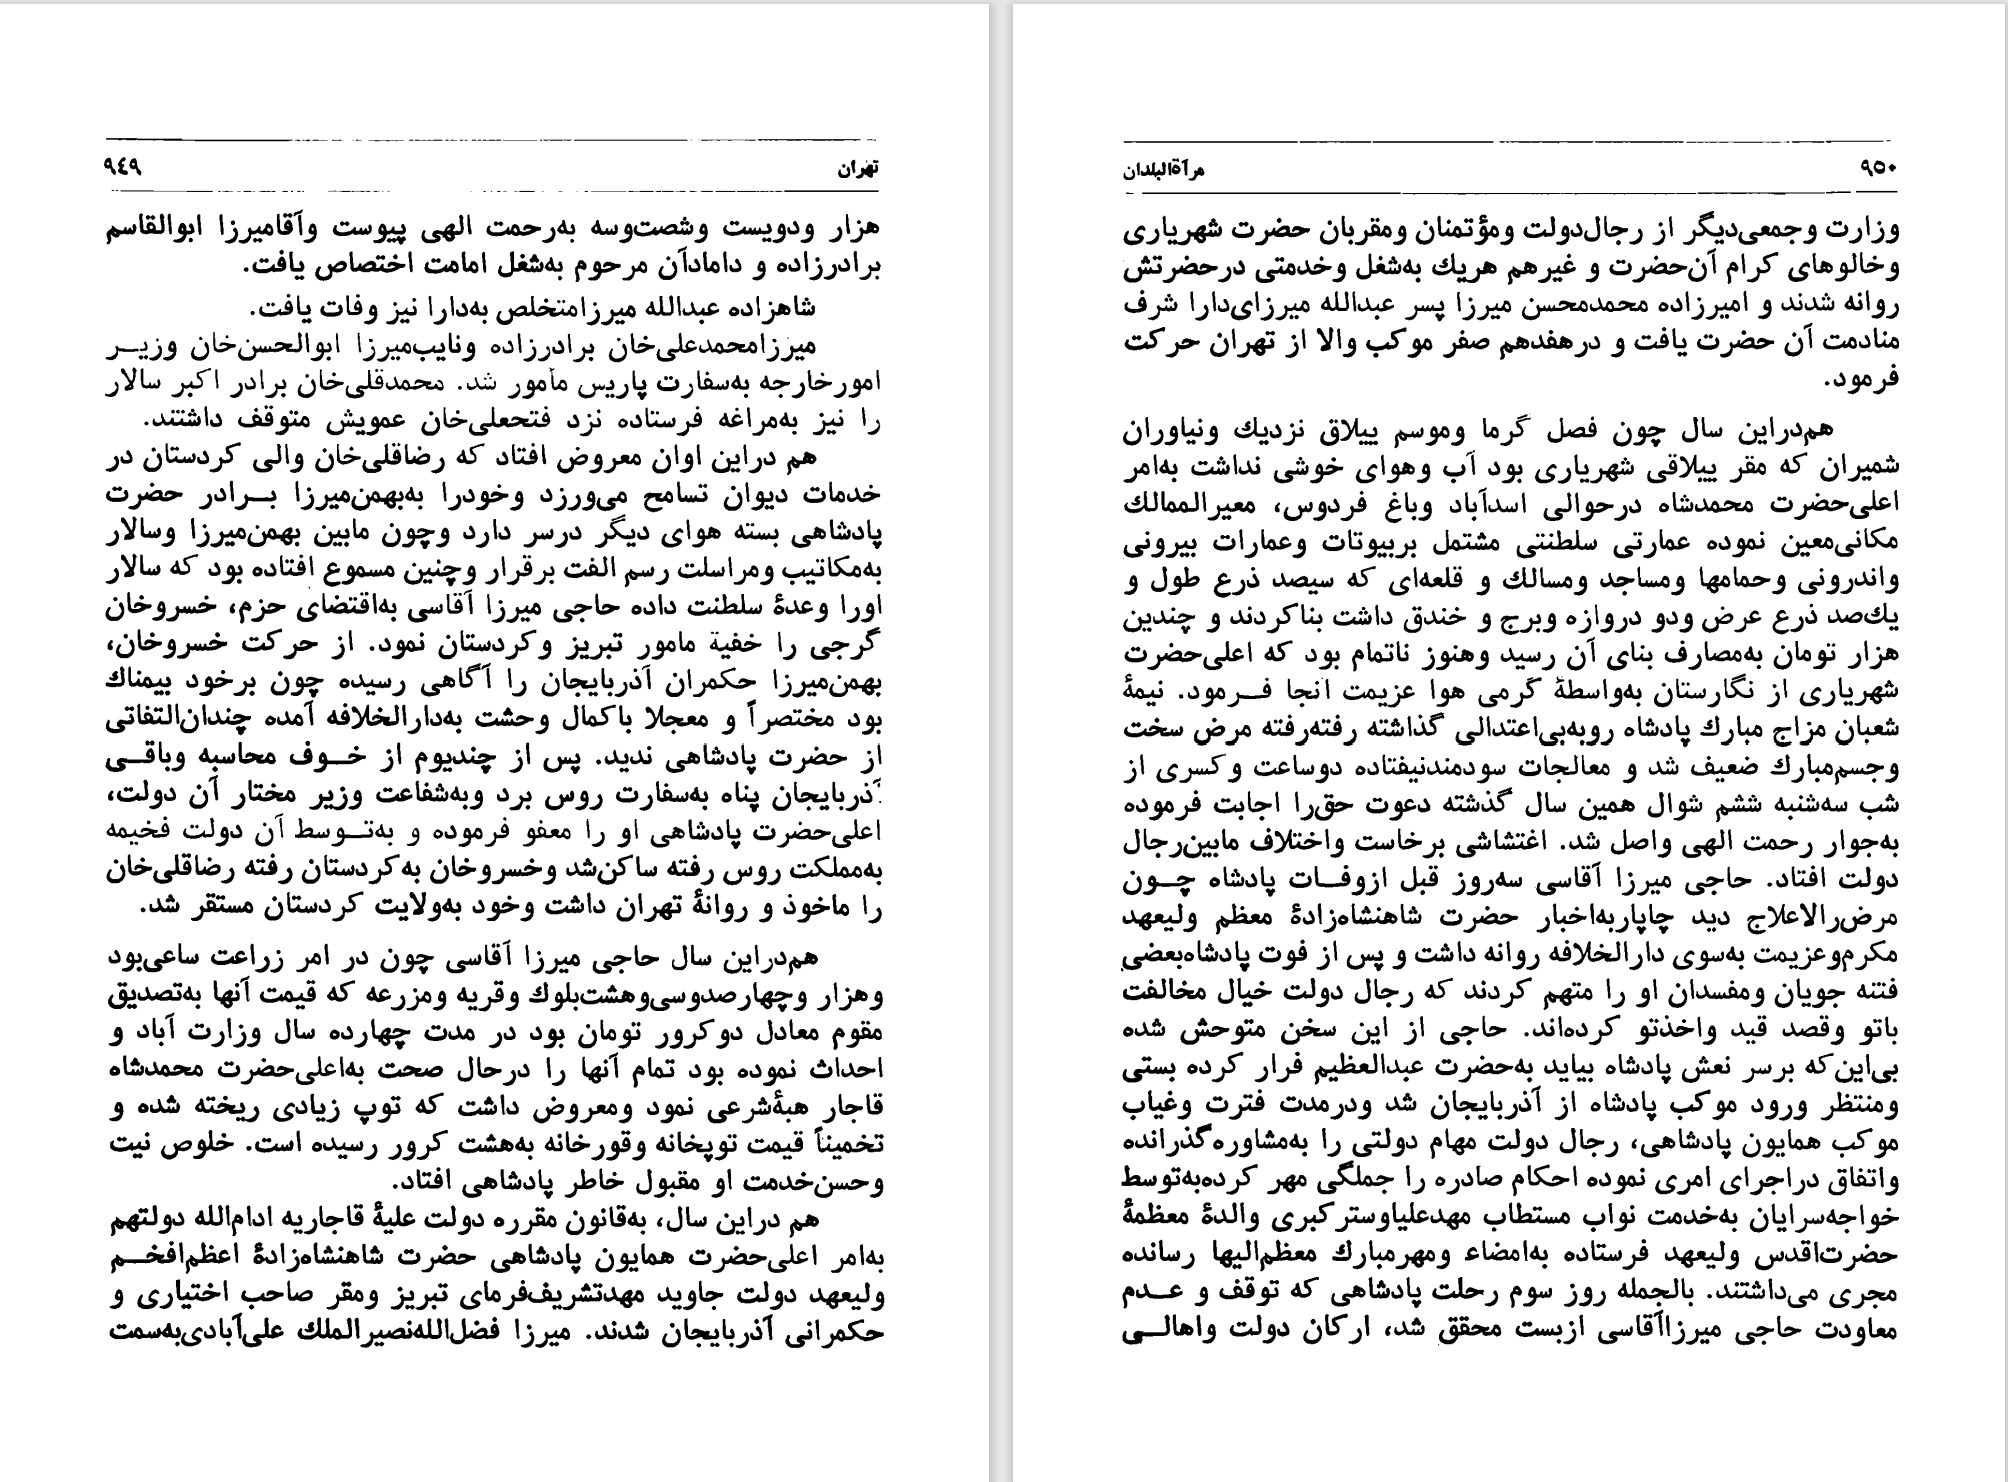 تهران
٩٤٩
هزار ودویست وشصت‌وسه به‌رحمت الهی پیوست وآقامیرزا ابوالقاسم
برادرزاده و دامادآن مرحوم به‌شغل امامت اختصاص یافت.
شاهزاده عبدالله میرزامتخلص به‌دارا نیز وفات یافت.
میرزامحمدعلی‌خان برادرزاده ونایب‌میرزا ابوالحسن‌خان وزیر
امورخارجه به‌سفارت پاریس مأمور شد. محمدقلی‌خان برادر اکبر سالار
را نیز به‌مراغه فرستاده نزد فتحعلی‌خان عمویش متوقف داشتند.
هم دراین اوان معروض افتاد که رضاقلی‌خان والی کردستان در
خدمات دیوان تسامح می‌ورزد وخودرا به‌بهمن‌میرزا برادر حضرت
پادشاهی بسته هوای دیگر درسر دارد وچون مابین بهمن‌میرزا وسالار
به‌مکاتیب ومراسلت رسم الفت برقرار وچنین مسموع افتاده بود که سالار
اورا وعدهٔ سلطنت داده حاجی میرزا آقاسی به‌اقتضای حزم، خسروخان
گرجی را خفیة مامور تبریز وکردستان نمود. از حرکت خسروخان،
بهمن‌میرزا حکمران آذربایجان را آگاهی رسیده چون برخود بیمناك
بود مختصراً و معجلا باکمال وحشت به‌دارالخلافه آمده چندان‌التفاتی
از حضرت پادشاهی ندید. پس از چندیوم از خوف محاسبه وباقی
آذربایجان پناه به‌سفارت روس برد وبه‌شفاعت وزیر مختار آن دولت،
اعلی‌حضرت پادشاهی او را معفو فرموده و به‌توسط آن دولت فخیمه
به‌مملکت روس رفته ساکن‌شد وخسروخان به‌کردستان رفته رضاقلی‌خان
را ماخوذ و روانهٔ تهران داشت وخود به‌ولایت کردستان مستقر شد.
هم‌دراین سال حاجی میرزا آقاسی چون در امر زراعت ساعی‌بود
وهزار وچهارصدوسی‌وهشت‌بلوك وقریه ومزرعه که قیمت آنها به‌تصدیق
مقوم معادل دوکرور تومان بود در مدت چهارده سال وزارت آباد و
احداث نموده بود تمام آنها را درحال صحت به‌اعلی‌حضرت محمدشاه
قاجار هبهٔ‌شرعی نمود ومعروض داشت که توپ زیادی ریخته شده و
تخمیناً قیمت توپخانه وقورخانه به‌هشت کرور رسیده است. خلوص نیت
وحسن‌خدمت او مقبول خاطر پادشاهی افتاد.
هم دراین سال، به‌قانون مقرره دولت علیهٔ قاجاریه ادام‌الله دولتهم
به‌امر اعلی‌حضرت همایون پادشاهی حضرت شاهنشاه‌زادهٔ اعظم‌افخم
ولیعهد دولت جاوید مهدتشریف‌فرمای تبریز ومقر صاحب اختیاری و
حکمرانی آذربایجان شدند. میرزا فضل‌الله‌نصیرالملك علی‌آبادی‌به‌سمت
٩٥٠
مرآةالبلدان
وزارت وجمعی‌دیگر از رجال‌دولت ومؤتمنان ومقربان حضرت شهریاری
وخالوهای کرام آن‌حضرت و غیرهم هریك به‌شغل وخدمتی درحضرتش
روانه شدند و امیرزاده محمدمحسن میرزا پسر عبدالله میرزای‌دارا شرف
منادمت آن حضرت یافت و درهفدهم صفر موکب والا از تهران حرکت
فرمود.
هم‌دراین سال چون فصل گرما وموسم ییلاق نزدیك ونیاوران
شمیران که مقر ییلاقی شهریاری بود آب وهوای خوشی نداشت به‌امر
اعلی‌حضرت محمدشاه درحوالی اسدآباد وباغ فردوس، معیرالممالك
مکانی‌معین نموده عمارتی سلطنتی مشتمل بربیوتات وعمارات بیرونی
واندرونی وحمامها ومساجد ومسالك و قلعه‌ای که سیصد ذرع طول و
یك‌صد ذرع عرض ودو دروازه وبرج و خندق داشت بناکردند و چندین
هزار تومان به‌مصارف بنای آن رسید وهنوز ناتمام بود که اعلی‌حضرت
شهریاری از نگارستان به‌واسطهٔ گرمی هوا عزیمت آنجا فرمود. نیمهٔ
شعبان مزاج مبارك پادشاه روبه‌بی‌اعتدالی گذاشته رفته‌رفته مرض سخت
وجسم‌مبارك ضعیف شد و معالجات سودمندنیفتاده دوساعت وکسری از
شب سه‌شنبه ششم شوال همین سال گذشته دعوت حق‌را اجابت فرموده
به‌جوار رحمت الهی واصل شد. اغتشاشی برخاست واختلاف مابین‌رجال
دولت افتاد. حاجی میرزا آقاسی سه‌روز قبل ازوفات پادشاه چون
مرض‌رالاعلاج دید چاپاربه‌اخبار حضرت شاهنشاه‌زادهٔ معظم ولیعهد
مکرم‌وعزیمت به‌سوی دارالخلافه روانه داشت و پس از فوت پادشاه‌بعضی
فتنه جویان ومفسدان او را متهم کردند که رجال دولت خیال مخالفت
باتو وقصد قید واخذتو کرده‌اند. حاجی از این سخن متوحش شده
بی‌این‌که برسر نعش پادشاه بیاید به‌حضرت عبدالعظیم فرار کرده بستی
ومنتظر ورود موکب پادشاه از آذربایجان شد ودرمدت فترت وغیاب
موکب همایون پادشاهی، رجال دولت مهام دولتی را به‌مشاوره‌گذرانده
واتفاق دراجرای امری نموده احکام صادره را جملگی مهر کرده‌به‌توسط
خواجه‌سرایان به‌خدمت نواب مستطاب مهدعلیاوسترکبری والدهٔ معظمهٔ
حضرت‌اقدس ولیعهد فرستاده به‌امضاء ومهرمبارك معظم‌الیها رسانده
مجری می‌داشتند. بالجمله روز سوم رحلت پادشاهی که توقف و عدم
معاودت حاجی میرزاآقاسی ازبست محقق شد، ارکان دولت واهالی